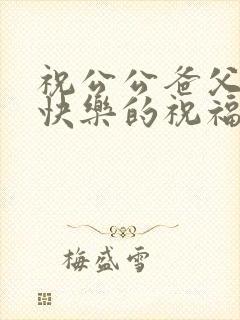 祝公公爸父
快樂的祝福
梅盛雪